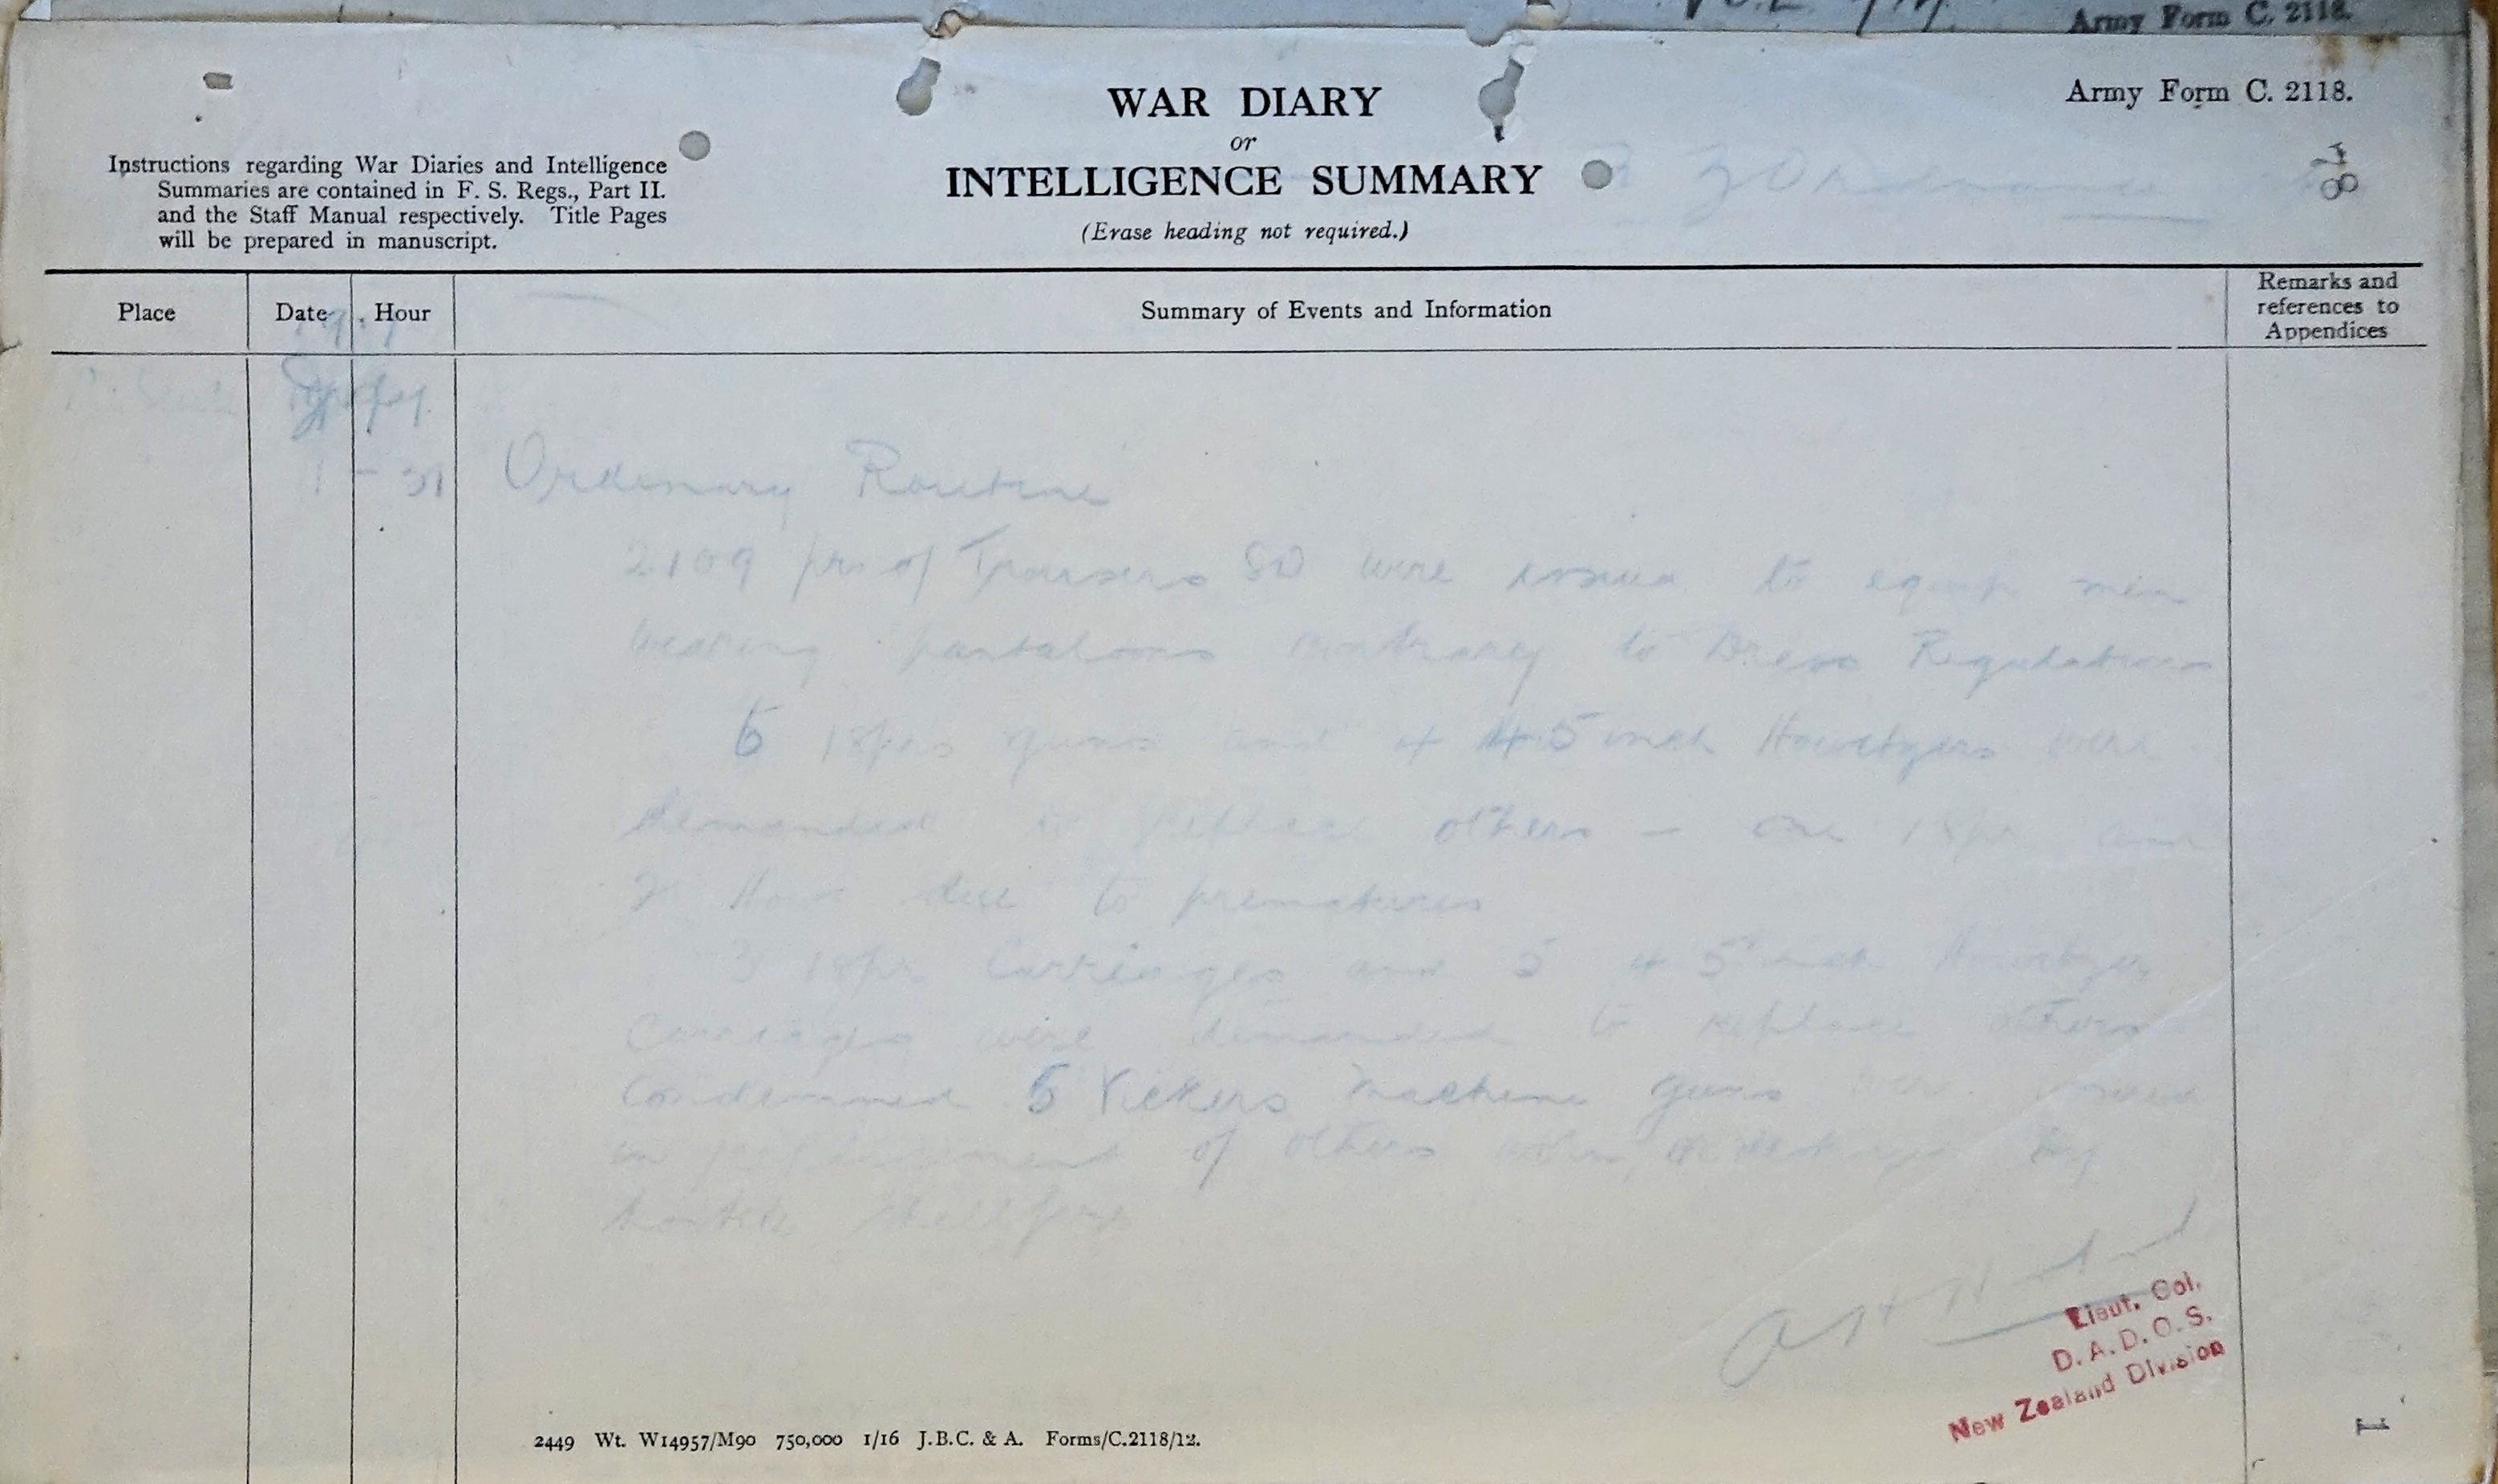 Army Form C. 2118.
WAR DIARY
or
INTELLIGENCE SUMMARY
(Erase heading not required.)
Army Form C. 2118.
87
Instructions regarding War Diaries and Intelligence
Summaries are contained in F. S. Regs., Part II.
and the Staff Manual respectively. Title Pages
will be prepared in manuscript.
Place
Date
Hour
Summary of Events and Information
Remarks and
references to
Appendices
1 - 31 Ordinary Routine
2109 prs of Trousers SD were issued to equip men
wearing pantaloons contrary to Dress Regulations
18prs guns and 4 4.5 inch Howitzers were
demanded to replace others - one 18pr and
2 Hows due to prematures
3 18pr Carriages and 5 4.5 inch Howitzer
Carriages were demanded to replace others
Condemned 5 Vickers Machine guns were issued
in replacement of others by
hostile shellfire
Lieut. Col.
D. A. D. O. S.
New Zealand Division
2449 Wt. W14957/M90 750,000 1/16 J.B.C. & A. Forms/C.2118/12.